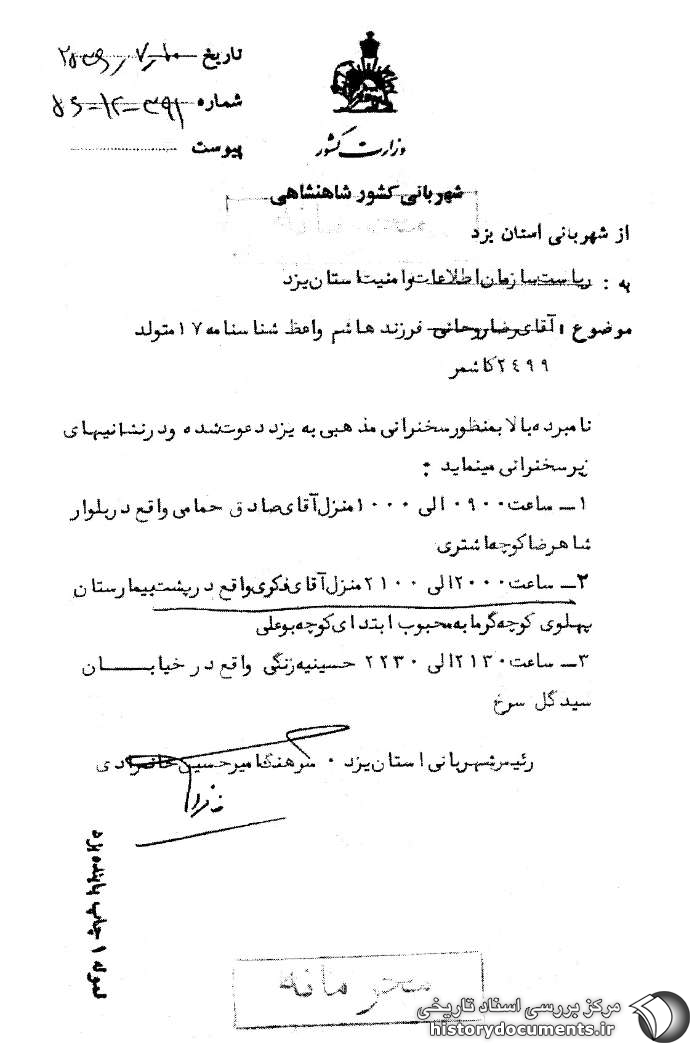 تاریخ
شماره ۳۹۱-۱۲-۵۶
پیوست
وزارت کشور
شهربانی کشور شاهنشاهی
از شهربانی استان یزد
به : ریاست سازمان اطلاعات و امنیت استان یزد
موضوع : آقای رضا روحانی فرزند هاشم واعظ شناسنامه ۱۷ متولد
۲۴۹۹ کاشمر
نامبرده بالا بمنظور سخنرانی مذهبی به یزد دعوت شده و در نشانیهای
زیر سخنرانی مینماید :
۱ـ ساعت ۰۹۰۰ الی ۱۰۰۰ منزل آقای صادق حمامی واقع در بلوار
شاهرضا کوچه اشتری
۲ـ ساعت ۲۰۰۰ الی ۲۱۰۰ منزل آقای فکری واقع در پشت بیمارستان
پهلوی کوچه گرمابه محبوب ابتدای کوچه بوعلی
۳ـ ساعت ۲۱۳۰ الی ۲۲۳۰ حسینیه زنگی واقع در خیابان
سید گل سرخ
رئیس شهربانی استان یزد . سرهنگ امیرحسین
مرکز بررسی اسناد تاریخی
historydocuments.ir